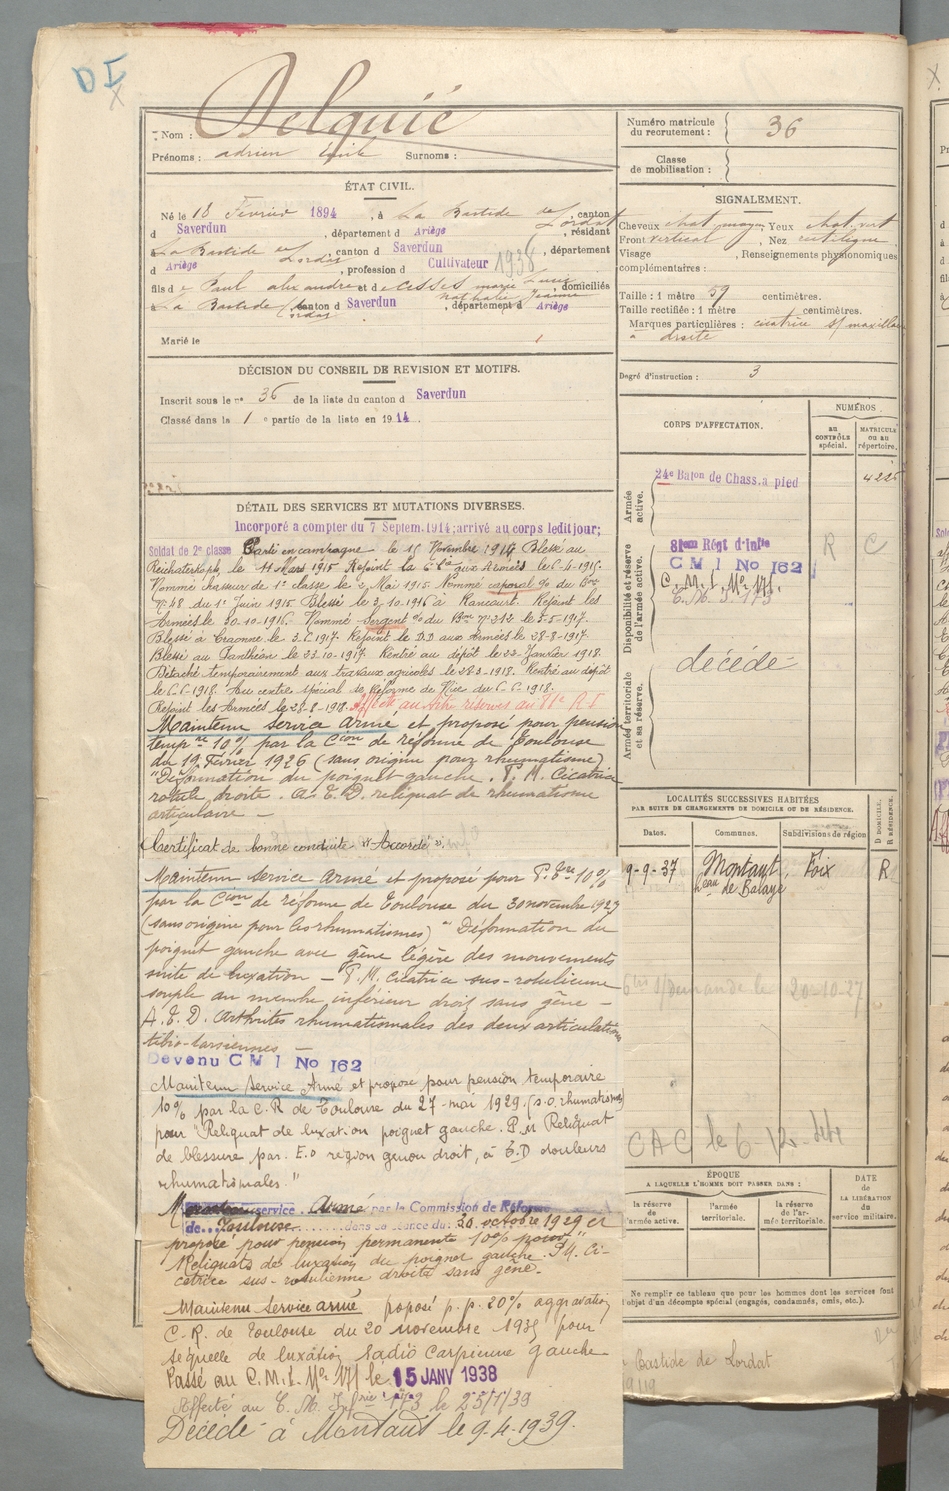 D I
Nom : Delquié
Prénoms : adrien Emile Surnoms :
Numéro matricule
du recrutement : 36
Classe
de mobilisation :
ÉTAT CIVIL.
Né le 18 Février 1894, à La Bastide de Lordat, canton
d Saverdun, département d Ariège, résidant
La Bastide de Lordat, canton d Saverdun, département
d Ariège, profession d Cultivateur 1938
fils de Paul alexandre et de marie Lucie domiciliés
nathalie Jeanne
La Bastide Lordat canton d Saverdun, département d Ariège
Marié le
SIGNALEMENT.
Cheveux chat moyen Yeux chat vert
Front vertical, Nez rectiligne
Visage , Renseignements physionomiques
complémentaires :
Taille : 1 mètre 59 centimètres.
Taille rectifiée : 1 mètre centimètres.
Marques particulières : cicatrice s/ maxillaire
à droite
Degré d'instruction : 3
DÉCISION DU CONSEIL DE REVISION ET MOTIFS.
Inscrit sous le n° 36 de la liste du canton d Saverdun
Classé dans la 1 e partie de la liste en 1914.
DÉTAIL DES SERVICES ET MUTATIONS DIVERSES.
Incorporé a compter du 7 Septem. 1914; arrivé au corps ledit jour;
Soldat de 2e classe Parti en campagne le 15 Novembre 1914 Blessé au
Reichakerkopf, le 11 Mars 1915 Rejoint la 6e Cie aux Armées le 6-4-1915.
Nommé chasseur de 1e classe le Mai 1915 Nommé caporal
N° 48 du 1er Juin 1915. Blessé le 3-10-1916 à Rancourt. Rejoint les
Armées le 30-10-1916. Nommé Sergent N° 212 le 5-5-1917.
Blessé à Craonne le 1917. Rejoint le D.D aux Armées le 28-8-1917.
Blessé au Panthéon le 23-10-1917 Rentré au dépôt le 22 Janvier 1918.
Détaché temporairement aux travaux agricoles le 1918. Rentré au dépôt
le 6.6.1918. Au centre spécial de Réforme de Nice du 6-6-1918.
Rejoint les Armées le 28-8-1918. Affecté
Maintenu service armé et proposé pour pension
temp re 10% par la Cion de réforme de Toulouse
du 19 Février 1926 (sans origine pour rhumatisme)
"Déformation du poignet gauche. P. M. Cicatrice
rotule droite. A. E. D. reliquat de rhumatisme
articulaire –
Certificat de bonne conduite "Accordé".
Maintenu service armé et proposé pour P. 10%
par la Cion de réforme de Toulouse du 30 novembre 1927
(sans origine pour les rhumatismes) "Déformation du
poignet gauche avec gêne légère des mouvements
suite de luxation – P. M. cicatrice sus-rotulienne
souple au membre inférieur droit sans gêne –
A. E. D. Arthrites rhumatismales des deux articulations
tibio-tarsiennes
Devenu C M I No 162
Maintenu Service Armé et proposé pour pension temporaire
10% par la C.R de Toulouse du 27 mai 1929 (s.o. rhumatismes)
pour "Reliquat de luxation poignet gauche. P.M Reliquat
de blessure par E.o région genou droit, à E.D douleurs
rhumatismales."
Maintenu service Armé par la Commission de Réforme
de Toulouse dans sa séance du 30 octobre 1929 et
proposé pour pension permanente 10% pour "
Reliquats de luxation du poignet gauche. P.M. Ci-
catrice sus-rotulienne droite sans gêne.
Maintenu service armé proposé p.p. 20% aggravation
C.R. de Toulouse du 20 novembre pour
séquelle de luxation radio carpienne gauche
Passé au C.M.I. N° 171 le 15 JANV 1938
Affecté au C. M. Infrie 173 le
Décédé à Montaut le 9.4.1939.
CORPS D'AFFECTATION.
NUMÉROS
AU CONTRÔLE spécial.
MATRICULE ou au répertoire.
Armée active.
24e Baton de Chass. à pied
Disponibilité et réserve de l'armée active.
81em Régt d'Infie R C
C M I No 162
C. M. I. No 171.
C. M. I. 173
Armée territoriale et sa réserve.
décédé
LOCALITÉS SUCCESSIVES HABITÉES
PAR SUITE DE CHANGEMENTS DE DOMICILE OU DE RÉSIDENCE.
Dates. Communes. Subdivisions de région D DOMICILE. R RÉSIDENCE.
9-9-37 Montaut, Foix R
heau de Balaye
s/ demande le 20-10-27
C A C le 6-12-
ÉPOQUE
A LAQUELLE L'HOMME DOIT PASSER DANS :
la réserve de l'armée active.
l'armée territoriale.
la réserve de l'armée territoriale.
DATE de LA LIBÉRATION du service militaire.
Ne remplir ce tableau que pour les hommes dont les services font
l'objet d'un décompte spécial (engagés, condamnés, omis, etc.).
Bastide de Lordat